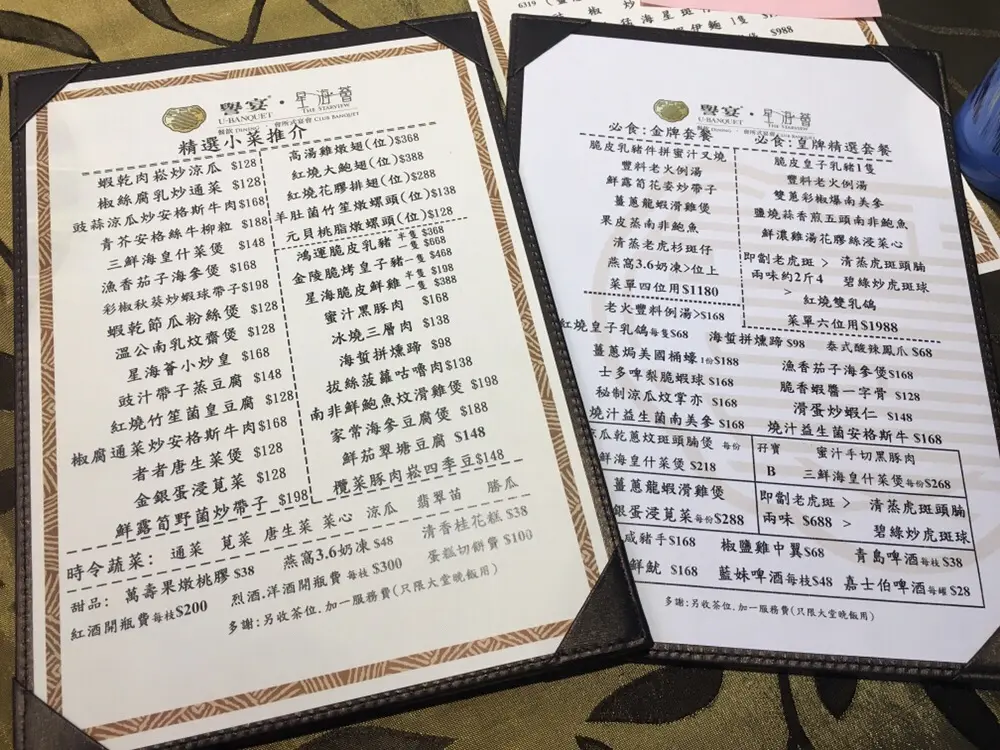 譽宴·星海薈
U-BANQUET THE STARVIEW
餐飲 DINING · 會所式宴會 CLUB BANQUET
精選小菜推介
蝦乾肉崧炒涼瓜 $128
椒絲腐乳炒通菜 $128
豉蒜涼瓜炒安格斯牛肉$168
青芥安格絲牛柳粒 $188
三鮮海皇什菜煲 $148
漁香茄子海參煲 $168
彩椒秋葵炒蝦球帶子$198
蝦乾節瓜粉絲煲 $128
溫公南乳炆齋煲 $128
星海薈小炒皇 $168
豉汁帶子蒸豆腐 $148
紅燒竹笙菌皇豆腐 $128
椒腐通菜炒安格斯牛肉$168
者者唐生菜煲 $128
金銀蛋浸莧菜 $128
鮮露筍野菌炒帶子 $198
高湯雞燉翅(位)$368
紅燒大鮑翅(位)$388
紅燒花膠排翅(位)$288
羊肚菌竹笙燉螺頭(位)$138
元貝桃脂燉螺頭(位)$128
鴻運脆皮乳豬 半隻 $368 一隻 $668
金陵脆烤皇子豬一隻 $468
星海脆皮鮮雞 半隻 $198 一隻 $388
蜜汁黑豚肉 $168
冰燒三層肉 $138
海蜇拼燻蹄 $98
拔絲菠蘿咕嚕肉$138
南非鮮鮑魚炆滑雞煲 $198
家常海參豆腐煲 $188
鮮茄翠塘豆腐 $148
欖菜豚肉崧四季豆$148
時令蔬菜: 通菜 莧菜 唐生菜 菜心 涼瓜 翡翠苗 勝瓜
甜品: 萬壽果燉桃膠 $38 燕窩3.6奶凍$48 清香桂花糕 $38
紅酒開瓶費每枝$200 烈酒.洋酒開瓶費 每枝 $300 蛋糕切餅費 $100
多謝:另收茶位.加一服務費(只限大堂晚飯用)
6319
$988
譽宴·星海薈
U-BANQUET THE STARVIEW
必食:金牌套餐
脆皮乳豬件拼蜜汁叉燒
豐料老火例湯
鮮露筍花姿炒帶子
薑蔥龍蝦滑雞煲
果皮蒸南非鮑魚
清蒸老虎杉斑仔
燕窩3.6奶凍>位上
菜單四位用$1180
必食:皇牌精選套餐
脆皮皇子乳豬1隻
豐料老火例湯
雙蔥彩椒爆南美參
鹽燒蒜香煎五頭南非鮑魚
鮮濃雞湯花膠絲浸菜心
即劏老虎斑 > 清蒸虎斑頭腩
兩味約2斤4 碧綠炒虎斑球
> 紅燒雙乳鴿
菜單六位用$1988
老火豐料例湯>$168
紅燒皇子乳鴿每隻$68 海蜇拼燻蹄 $98 泰式酸辣鳳爪 $68
薑蔥焗美國桶蠔 1份$188 漁香茄子海參煲$168
士多啤梨脆蝦球 $168 脆香蝦醬一字骨 $128
秘制涼瓜炆掌亦 $168 滑蛋炒蝦仁 $148
燒汁益生菌南美參 $168 燒汁益生菌安格斯牛 $168
瓜乾蔥炆斑頭腩煲 每份
鮮海皇什菜煲 $218
薑蔥龍蝦滑雞煲
銀蛋浸莧菜每份$288
孖寶 蜜汁手切黑豚肉
B 三鮮海皇什菜煲每份$268
即劏老虎斑 > 清蒸虎斑頭腩
兩味 $688 > 碧綠炒虎斑球
咸豬手$168 椒鹽雞中翼$68 青島啤酒每枝$38
鮮魷 $168 藍妹啤酒每枝$48 嘉士伯啤酒每罐 $28
多謝:另收茶位.加一服務費(只限大堂晚飯用)